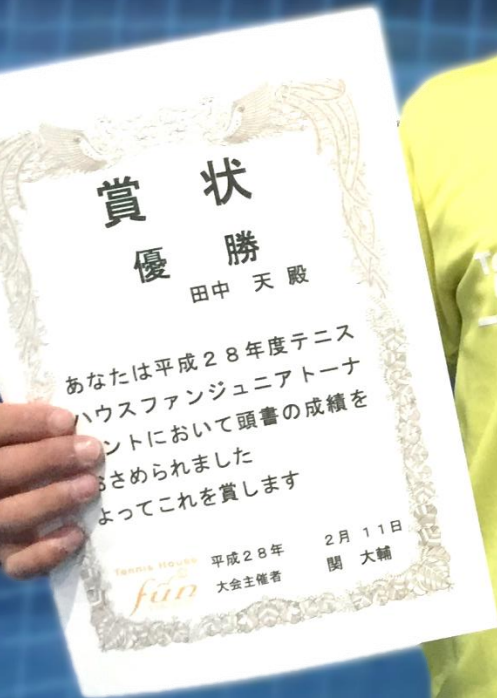 賞 状
優 勝
田中 天 殿
あなたは平成28年度テニス
ハウスファンジュニアトーナ
ントにおいて頭書の成績を
さめられました
よってこれを賞します
Tennis House
fun
平成28年 2月 11日
大会主催者 関 大輔